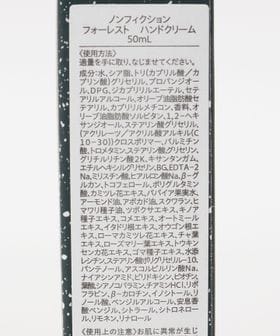 ノンフィクション
フォーレスト ハンドクリーム
50mL
〈使用方法〉
適量を手に取り、なじませてください。
成分:水、シア脂、トリ(カプリル酸/カ
プリン酸)グリセリル、プロパンジオー
ル、DPG、ジカプリリルエーテル、セテ
アリルアルコール、オリーブ油脂肪酸セ
テアリル、カプリリルメチコン、香料、オ
リーブ油脂肪酸ソルビタン、1,2-ヘキ
サンジオール、ステアリン酸グリセリル、
(アクリレーツ/アクリル酸アルキル(C
10-30))クロスポリマー、パルミチン
酸、トロメタミン、ステアリン酸、グリセリン、
グリチルリチン酸2K、キサンタンガム、
エチルヘキシルグリセリン、BG、EDTA-2
Na、ミリスチン酸、ヒアルロン酸Na、β-
グルカン、トコフェロール、ポリグルタミン
酸、カミツレ花エキス、パパイア果実水、
アーモンド油、アボカド油、スクワラン、ヒ
マワリ種子油、ツボクサエキス、キノア
種子エキス、コメエキス、オートミールエ
キス、イタドリ根エキス、オウゴン根エキ
ス、ローマカミツレ花エキス、チャ葉エキ
ス、ローズマリー葉エキス、トウキン
センカ花エキス、ゴマ種子エキス、水添
レシチン、ステアリン酸ポリグリセリル-10、
パンテノール、アスコルビルリン酸Na、
ナイアシンアミド、ピリドキシン、ビオチン、
葉酸、シアノコバラミン、チアミンHCl、リボ
フラビン、β-カロチン、イノシトール、リノ
ール酸、ベンジルアルコール、安息香
酸ベンジル、シトラール、シトロネロール、
リモネン、リナロール
〈使用上の注意〉お肌に異常が生じ